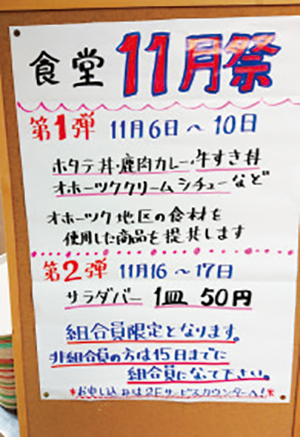 食堂 11月祭
第1弾 11月6日～10日
ホタテ丼・鹿肉カレー・牛すき丼
オホーツククリームシチューなど
オホーツク地区の食材を
使用した商品も提供します
第2弾 11月16～17日
サラダバー 1皿 50円
組合員限定となります。
非組合員の方は15日までに
組合員になって下さい。
*お申し込みは2Fサービスカウンターへ!*